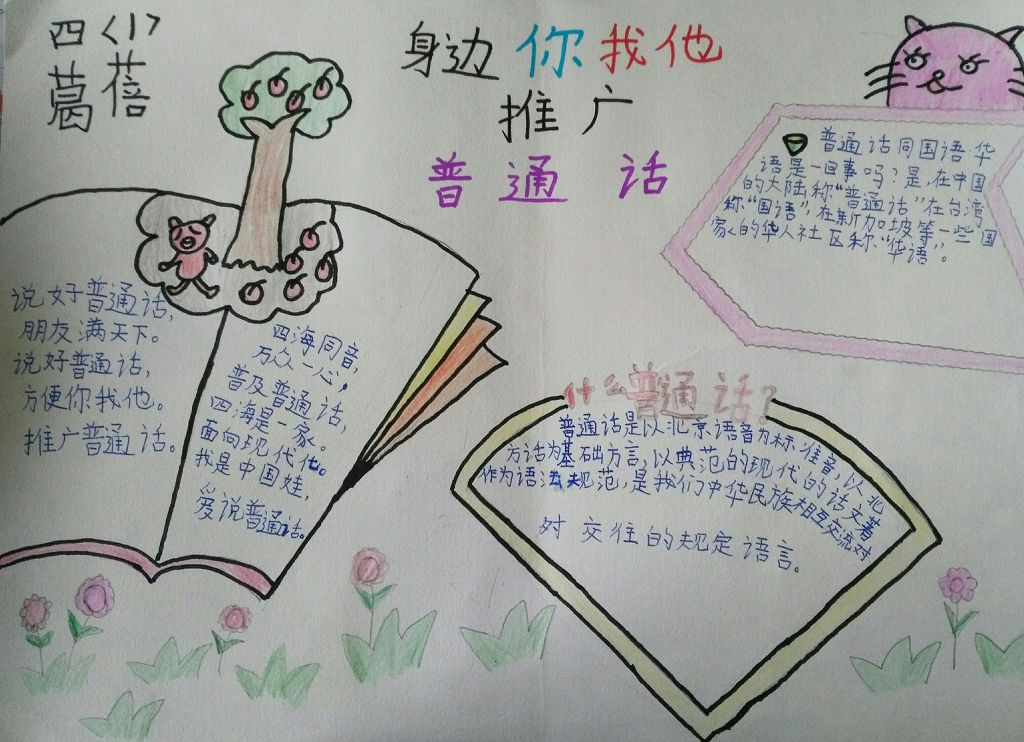 四〈1〉
葛蓓
身边你我他
推广
普通话
普通话同国语华
语是一回事吗？是，在中国
的大陆称“普通话”在台湾
称“国语”，在新加坡等一些国
家的华人社区称“华语”。
说好普通话，
朋友满天下。
说好普通话，
方便你我他。
推广普通话。
四海同音，
万众一心，
普及普通话，
四海是一家。
面向现代化。
我是中国娃，
爱说普通话。
什么普通话？
普通话是以北京语音为标准音，以北
方话为基础方言，以典范的现代的话文著
作为语法规范，是我们中华民族相互交流对
对交往的规定语言。